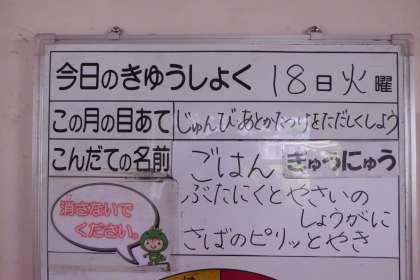 今日のきゅうしょく 18日火曜
この月の目あて じゅんび・あとかたづけをただしくしよう
こんだての名前 ごはん ぎゅうにゅう
ぶたにくとやさいの
しょうがに
さばのピリッとやき
消さないで
ください。